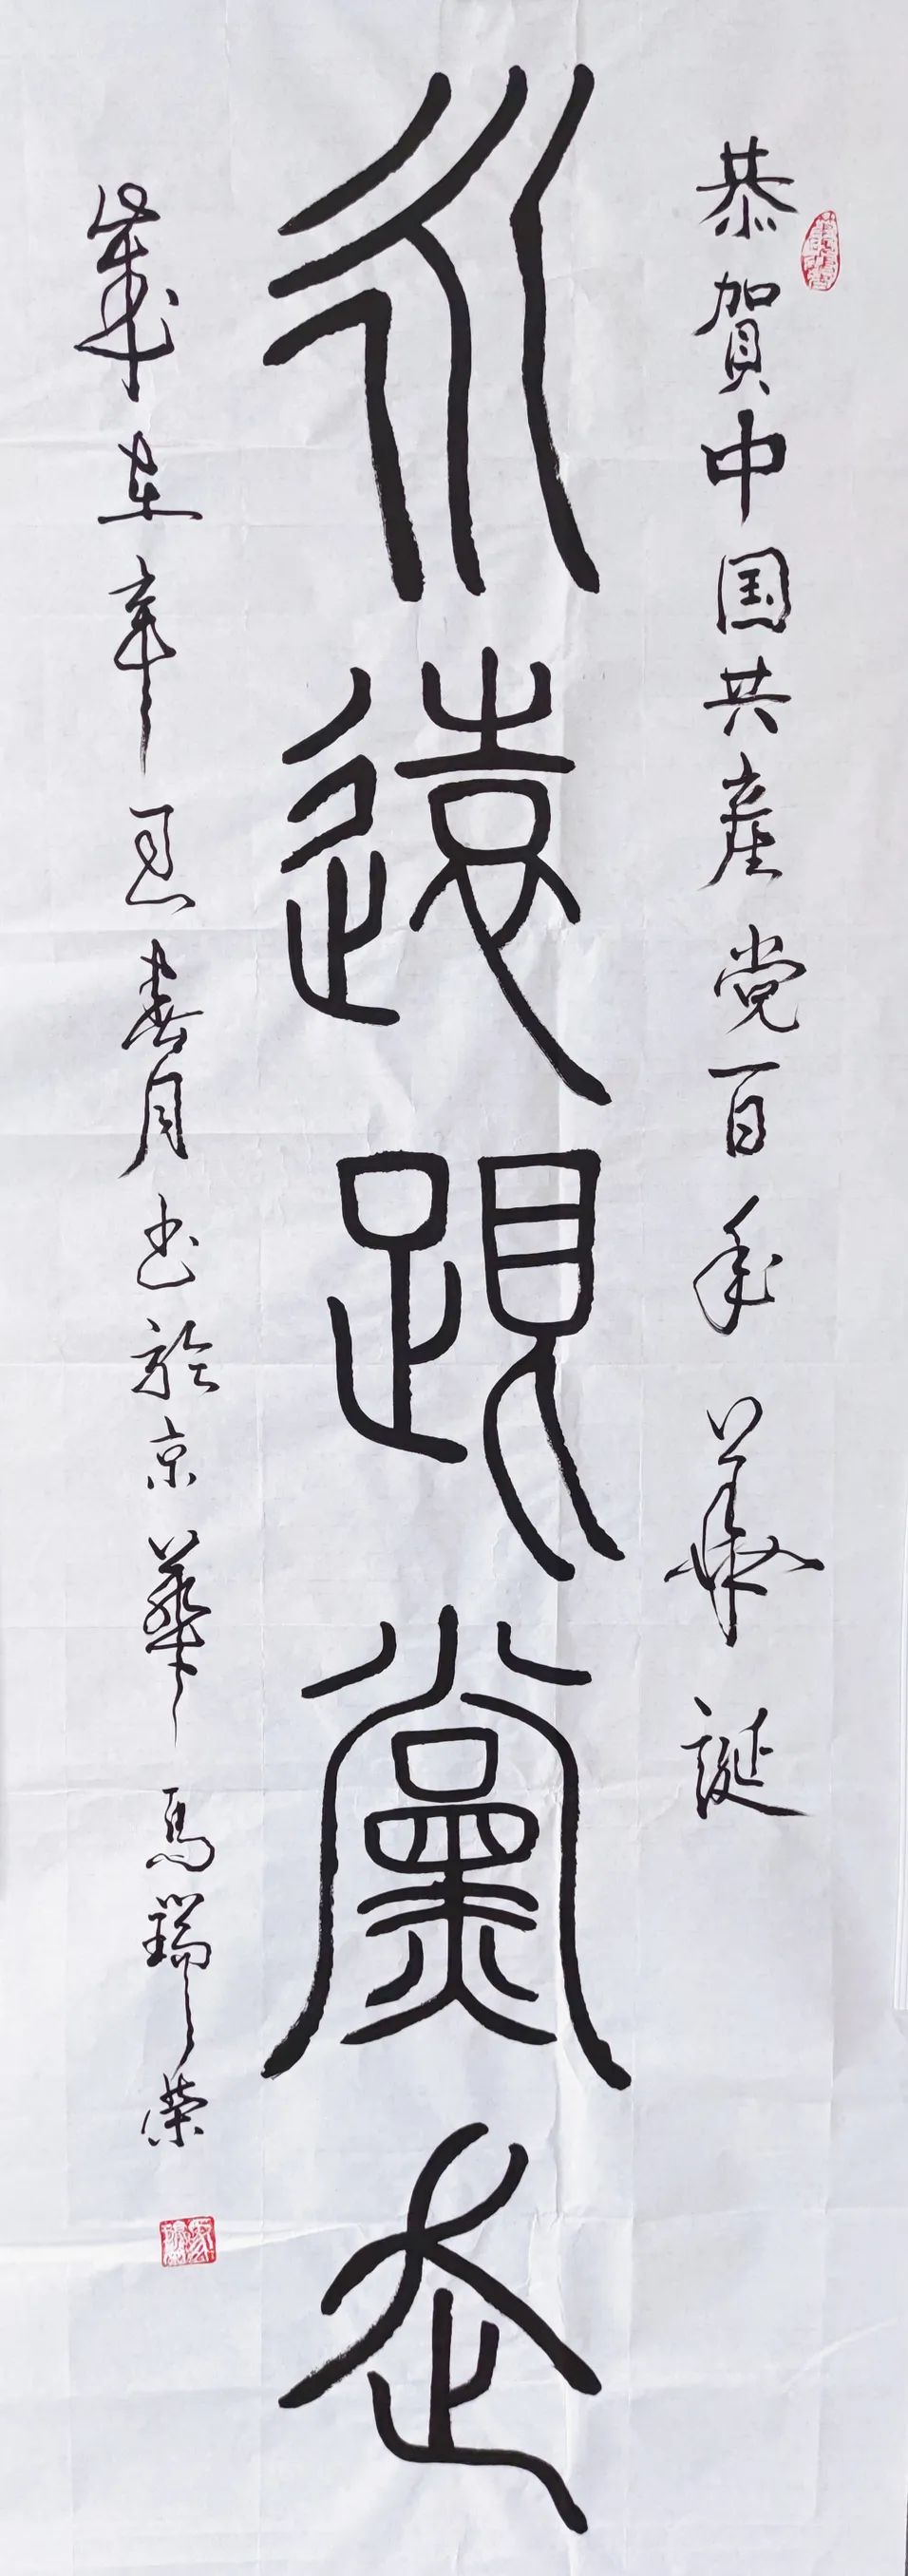 恭賀中国共產党百年華誕
永遠跟黨走
歲在辛丑春月书於京華馬瑞榮